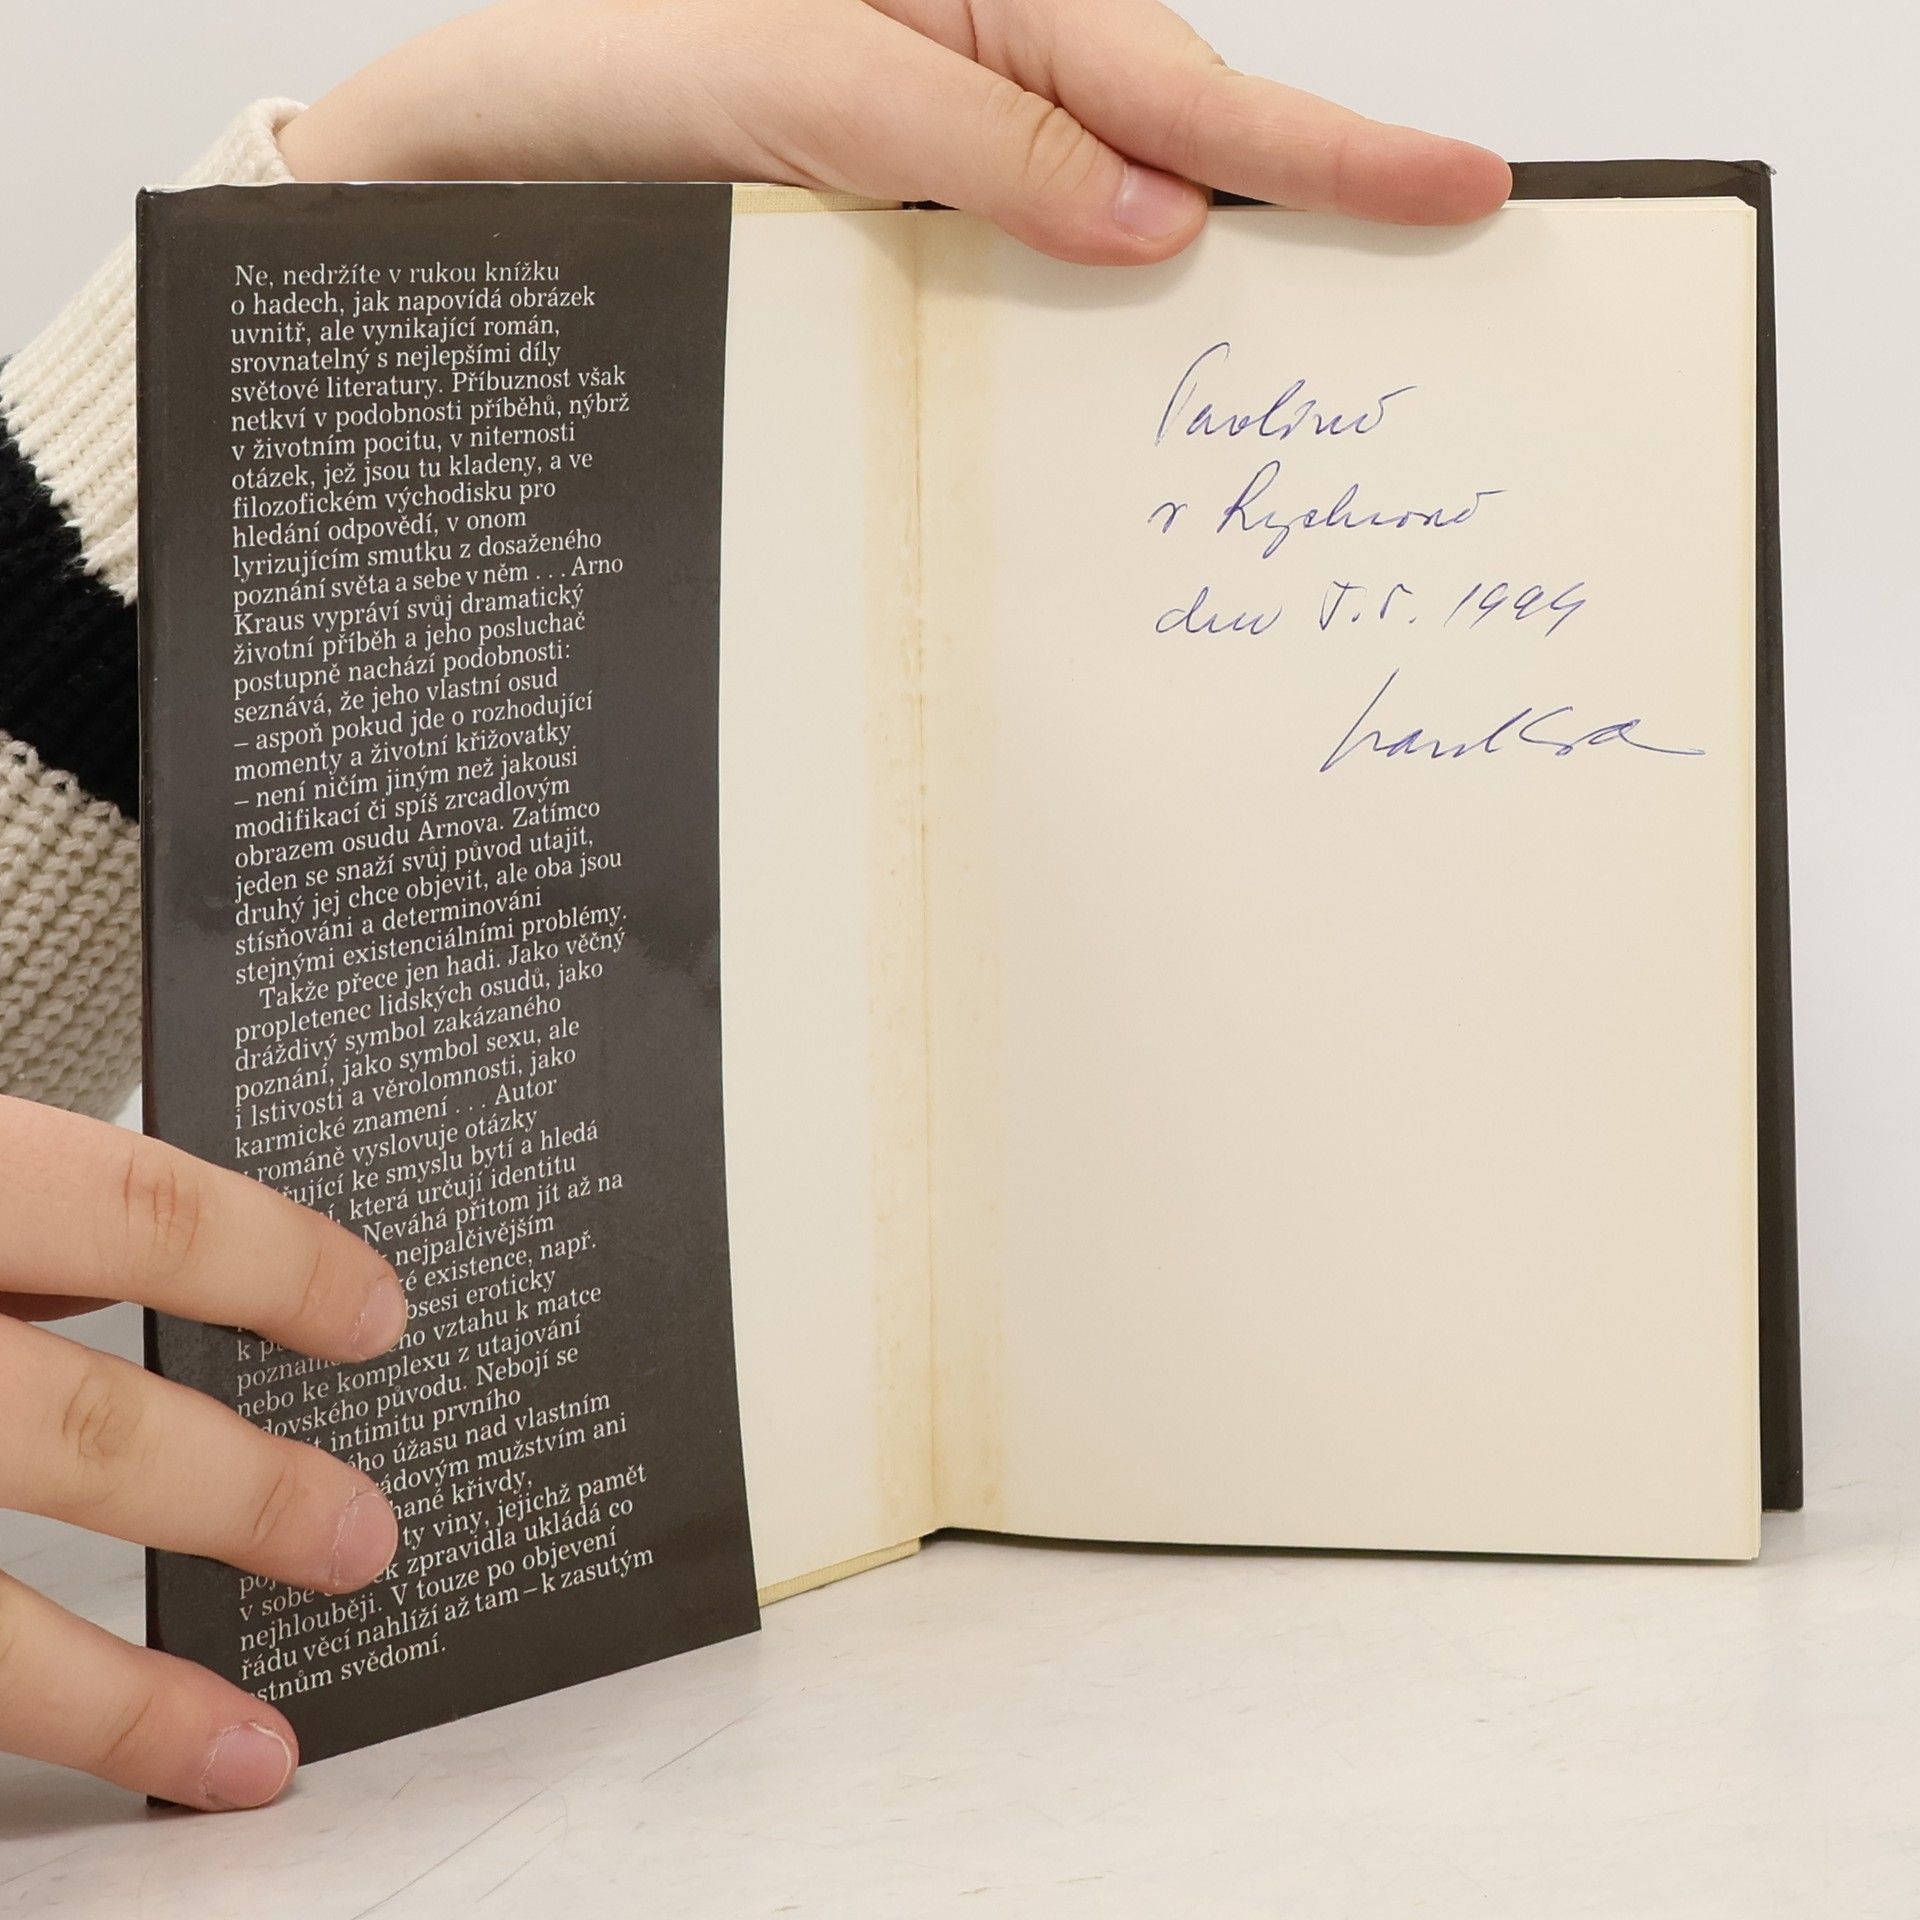 Ne, nedržíte v rukou knížku
o hadech, jak napovídá obrázek
uvnitř, ale vynikající román,
srovnatelný s nejlepšími díly
světové literatury. Příbuznost však
netkví v podobnosti příběhů, nýbrž
v životním pocitu, v niternosti
otázek, jež jsou tu kladeny, a ve
filozofickém východisku pro
hledání odpovědí, v onom
lyrizujícím smutku z dosaženého
poznání světa a sebe v něm . . . Arno
Kraus vypráví svůj dramatický
životní příběh a jeho posluchač
postupně nachází podobnosti:
seznává, že jeho vlastní osud
– aspoň pokud jde o rozhodující
momenty a životní křižovatky
– není ničím jiným než jakousi
modifikací či spíš zrcadlovým
obrazem osudu Arnova. Zatímco
jeden se snaží svůj původ utajit,
druhý jej chce objevit, ale oba jsou
stísňováni a determinováni
stejnými existenciálními problémy.
Takže přece jen hadi. Jako věčný
propletenec lidských osudů, jako
dráždivý symbol zakázaného
poznání, jako symbol sexu, ale
i lstivosti a věrolomnosti, jako
karmické znamení . . . Autor
románě vyslovuje otázky
ke smyslu bytí a hledá
která určují identitu
Neváhá přitom jít až na
nejpalčivějším
existence, např.
eroticky
k vztahu k matce
nebo ke komplexu z utajování
původu. Nebojí se
intimitu prvního
úžasu nad vlastním
mužstvím ani
křivdy,
ty viny, jejichž paměť
v sobě zpravidla ukládá co
nejhlouběji. V touze po objevení
řádu věcí nahlíží až tam – k zasutým
svědomí.
Pavlíně
v Rychnově
dne 5.5. 1994